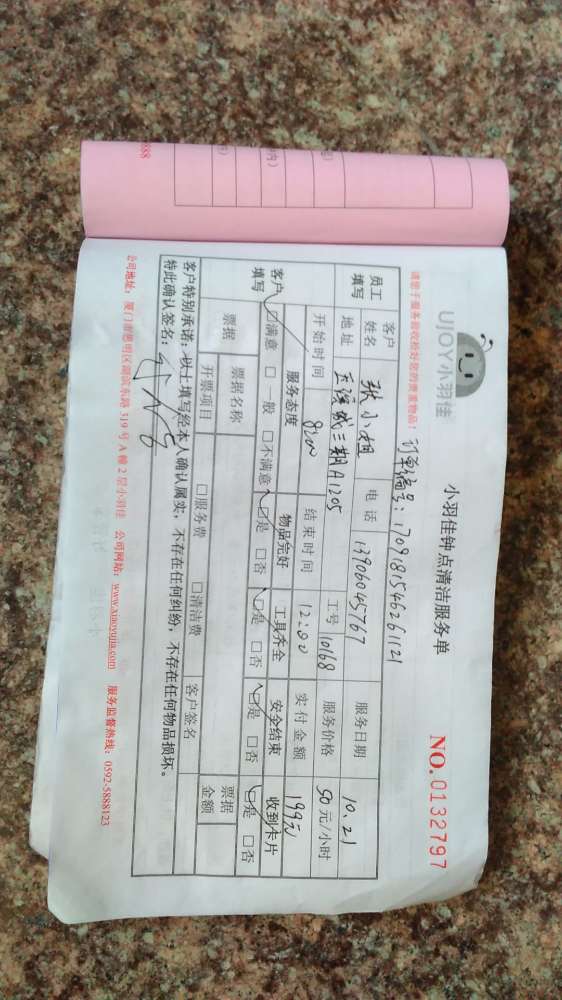 UJOY小羽佳
小羽佳钟点清洁服务单
NO. 0132797
请您于服务前收检好您的贵重物品!
订单编号:1709181546261121
员工填写 客户姓名 张小姐 电话 13906045767 服务日期 10.21
地址 三期A1205 工号 10168 服务价格 50元/小时
开始时间 8:00 结束时间 12:00 实付金额 199元
客户填写 服务态度 物品完好 工具齐全 安全结束 收到卡片
☑满意 □一般 □不满意 ☑是 □否 ☑是 □否 ☑是 □否 ☑是 □否
票据 票据名称 客户签名 票据金额
开票项目 □服务费 □清洁费
客户特别承诺:以上填写经本人确认属实,不存在任何纠纷,不存在任何物品损坏。
特此确认签名:
公司地址:厦门市思明区湖滨东路319号A幢2层小羽佳 公司网站:www.xiaoyujia.com 服务监督热线:0592-5888123